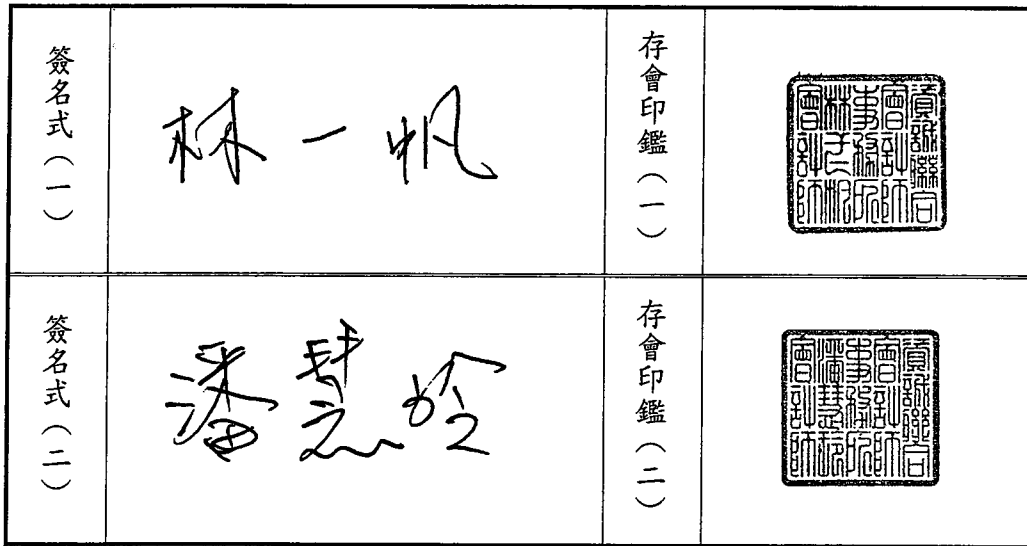 簽名式（一）
林一帆
存會印鑑（一）
資誠聯合
會計師
事務所
林一帆
會計師
簽名式（二）
潘慧玲
存會印鑑（二）
資誠聯合
會計師
事務所
潘慧玲
會計師